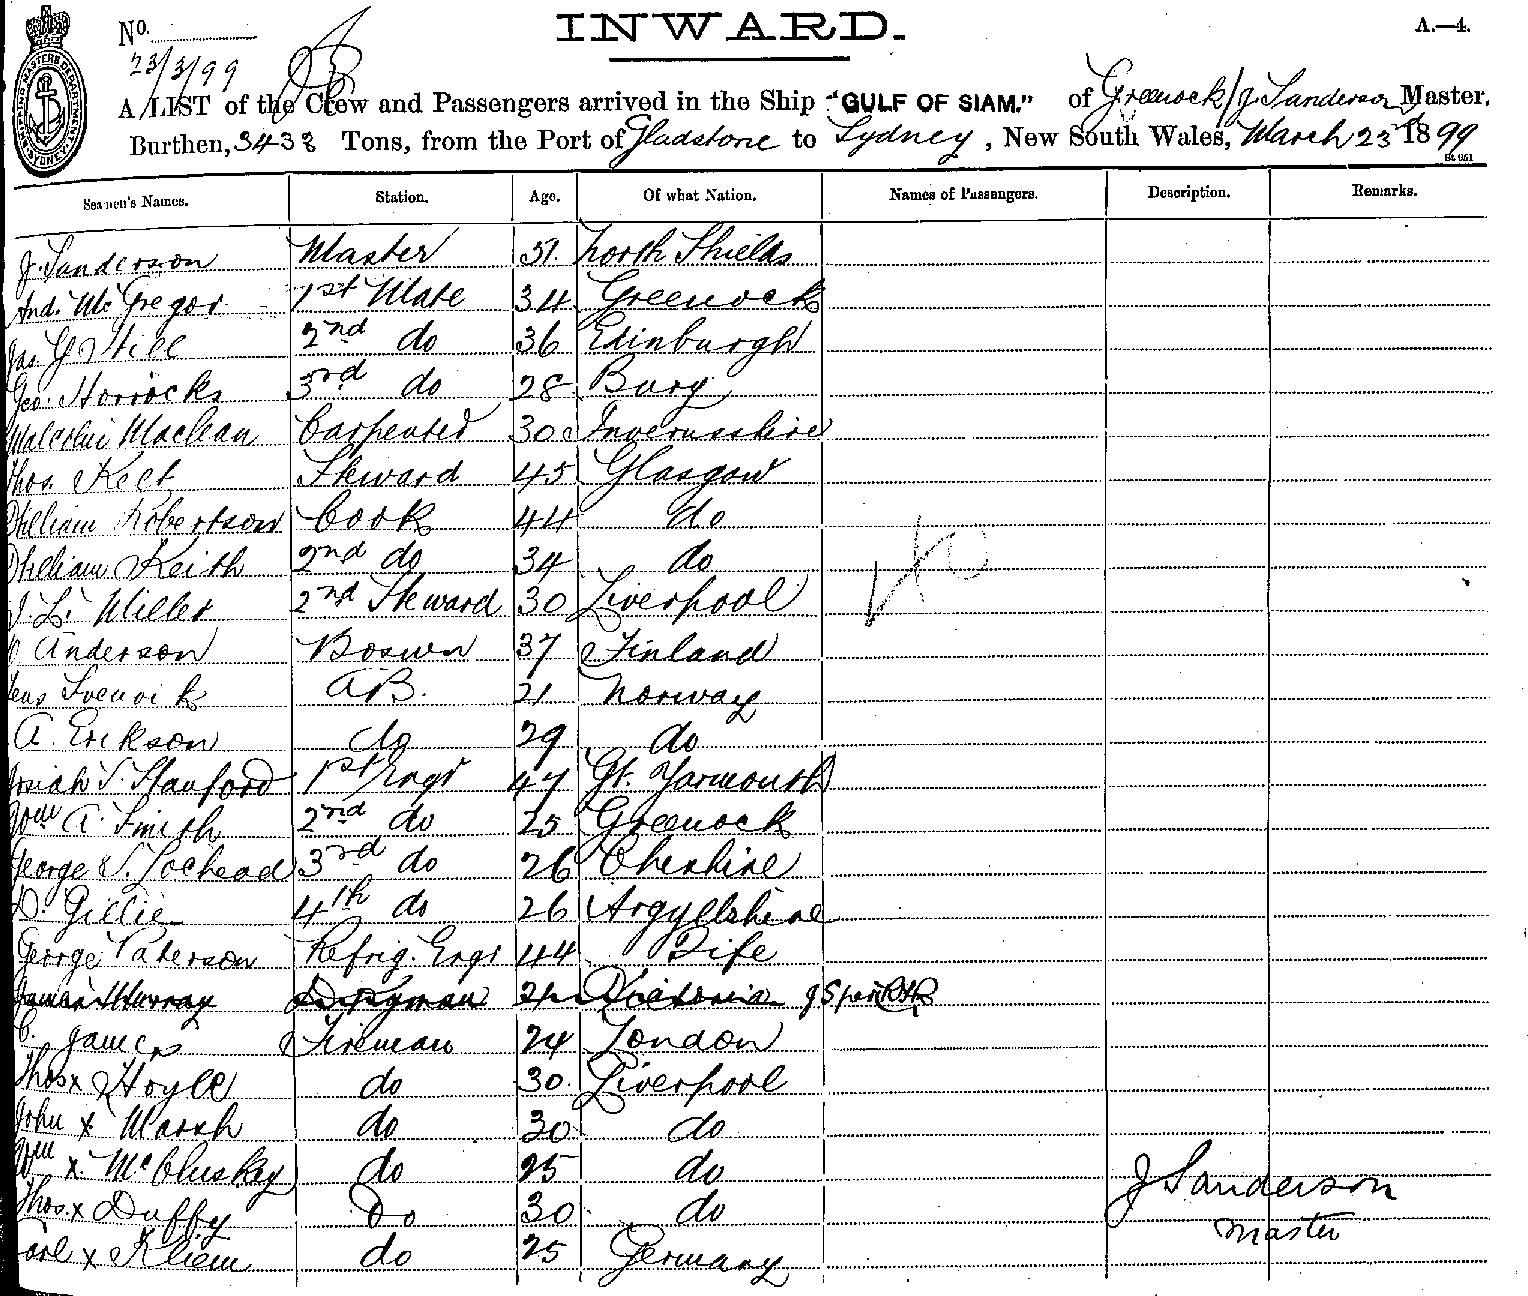 INWARD.
A.—4.
No.
23/3/99
A LIST of the Crew and Passengers arrived in the Ship "GULF OF SIAM." of Greenock / J. Sanderson Master,
Burthen, 3438 Tons, from the Port of Gladstone to Sydney, New South Wales, March 23rd 1899
Seamen's Names. Station. Age. Of what Nation. Names of Passengers. Description. Remarks.
J. Sanderson Master 51. North Shields
And. McGregor 1st Mate 34 Greenock
Jas 2nd do 36 Edinburgh
Geo. Horrocks 3rd do 28 Bury
Malcolm Maclean Carpenter 30 Invernesshire
Thos. Keet Steward 45 Glasgow
William Robertson Cook 44 do
William Keith 2nd do 34 do
J. L. Miller 2nd Steward 30 Liverpool
Anderson Boswn 37 Finland
A.B. 21 Norway
A. Erikson do 29 do
Josiah S. Stanford 1st Engr 47 Gt. Yarmouth
Wm A. Smith 2nd do 25 Greenock
George S. Lochead 3rd do 26 Cheshire
D. Gillie 4th do 26 Argyllshire
George Paterson Refrig. Engr 44 Fife
James Murray Victoria
C. James Fireman 24 London
Thos x Hoyle do 30. Liverpool
John x Marsh do 30 do
Wm x McCluskey do 25 do
Thos. x Duffy Do 30 do
Carl x Kliem do 25 Germany
J Sanderson
Master